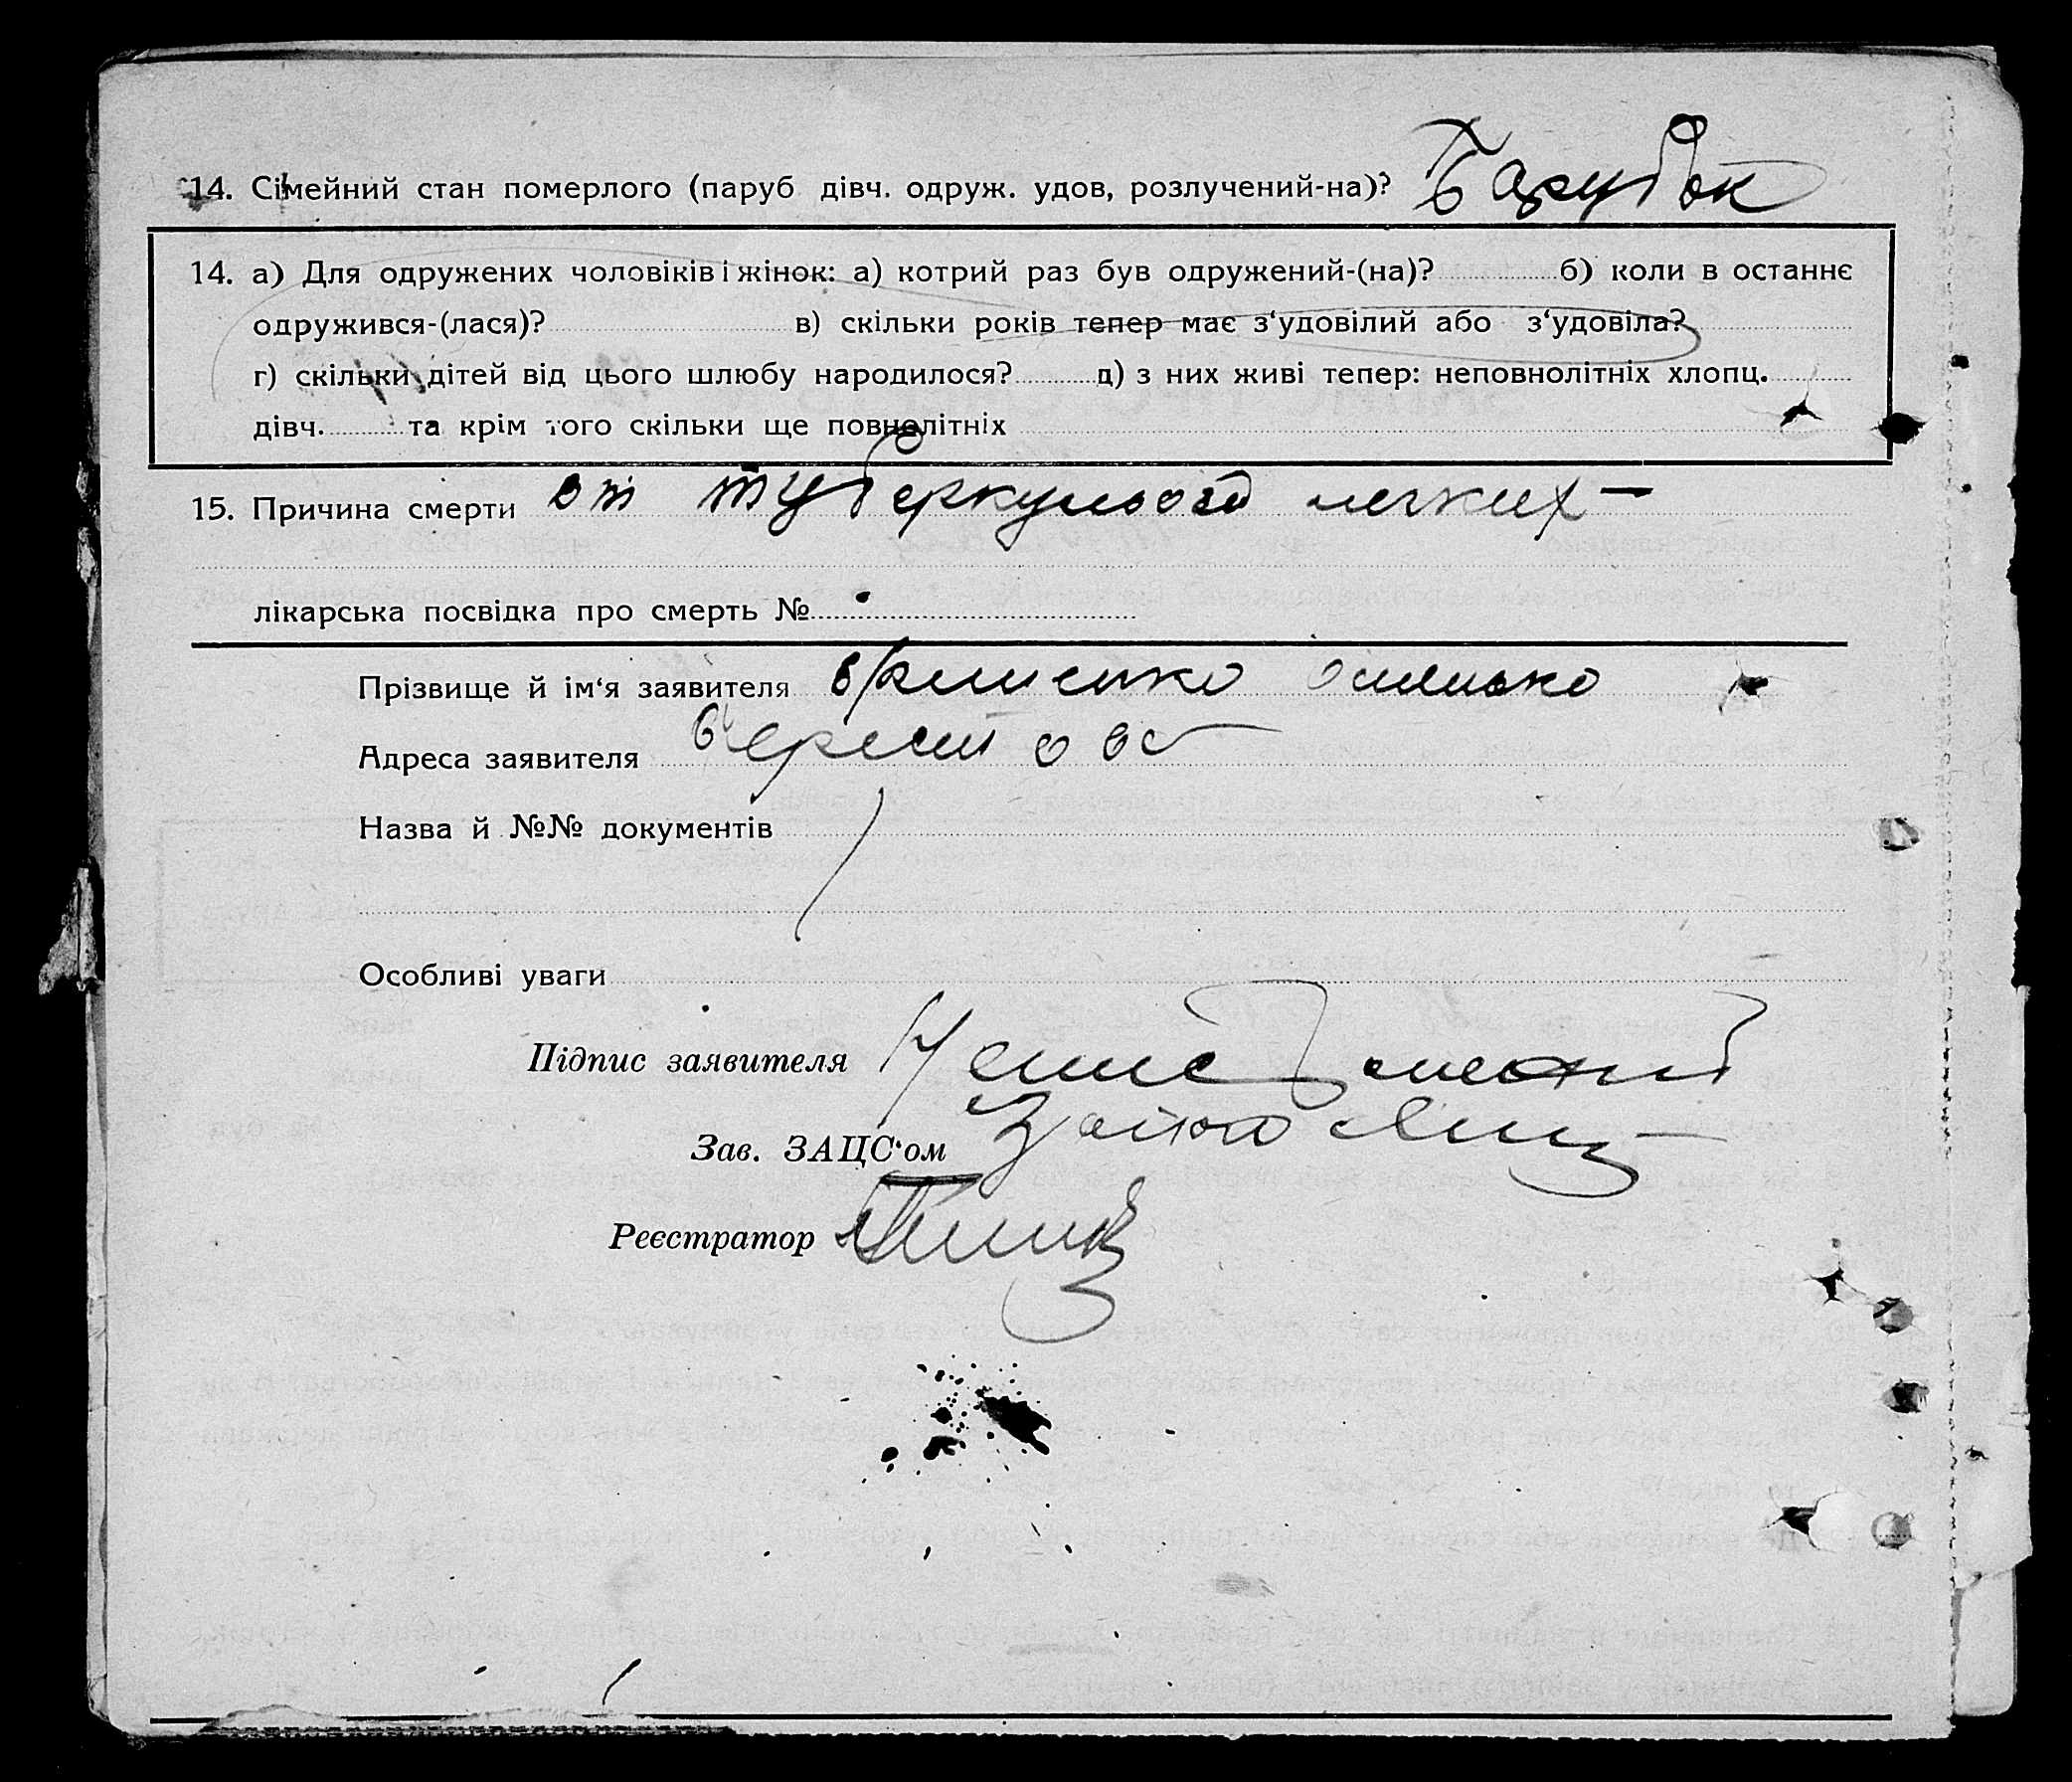 14. Сімейний стан померлого (паруб дівч. одруж. удов, розлучений-на)? Парубок
14. а) Для одружених чоловіків і жінок: а) котрий раз був одружений-(на)? б) коли в останнє
одружився-(лася)? в) скільки років тепер має з‘удовілий або з‘удовіла?
г) скільки дітей від цього шлюбу народилося? д) з них живі тепер: неповнолітніх хлопц.
дівч. та крім того скільки ще повнолітніх
15. Причина смерти від туберкульоза легких —
лікарська посвідка про смерть №
Прізвище й ім‘я заявителя
Адреса заявителя
Назва й №№ документів
Особливі уваги
Підпис заявителя
Зав. ЗАЦС‘ом
Реєстратор